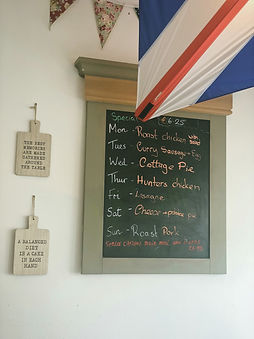 Special
£6.25
Mon - Roast chicken with salad
Tues - Curry Sausage + Egg
Wed - Cottage Pie
Thur - Hunters chicken
Fri - Lasagne
Sat - Cheese + potatoe pie
Sun - Roast Pork
THE BEST
MEMORIES
ARE MADE
GATHERED
AROUND
THE TABLE
A BALANCED
DIET
IS A CAKE
IN EACH
HAND